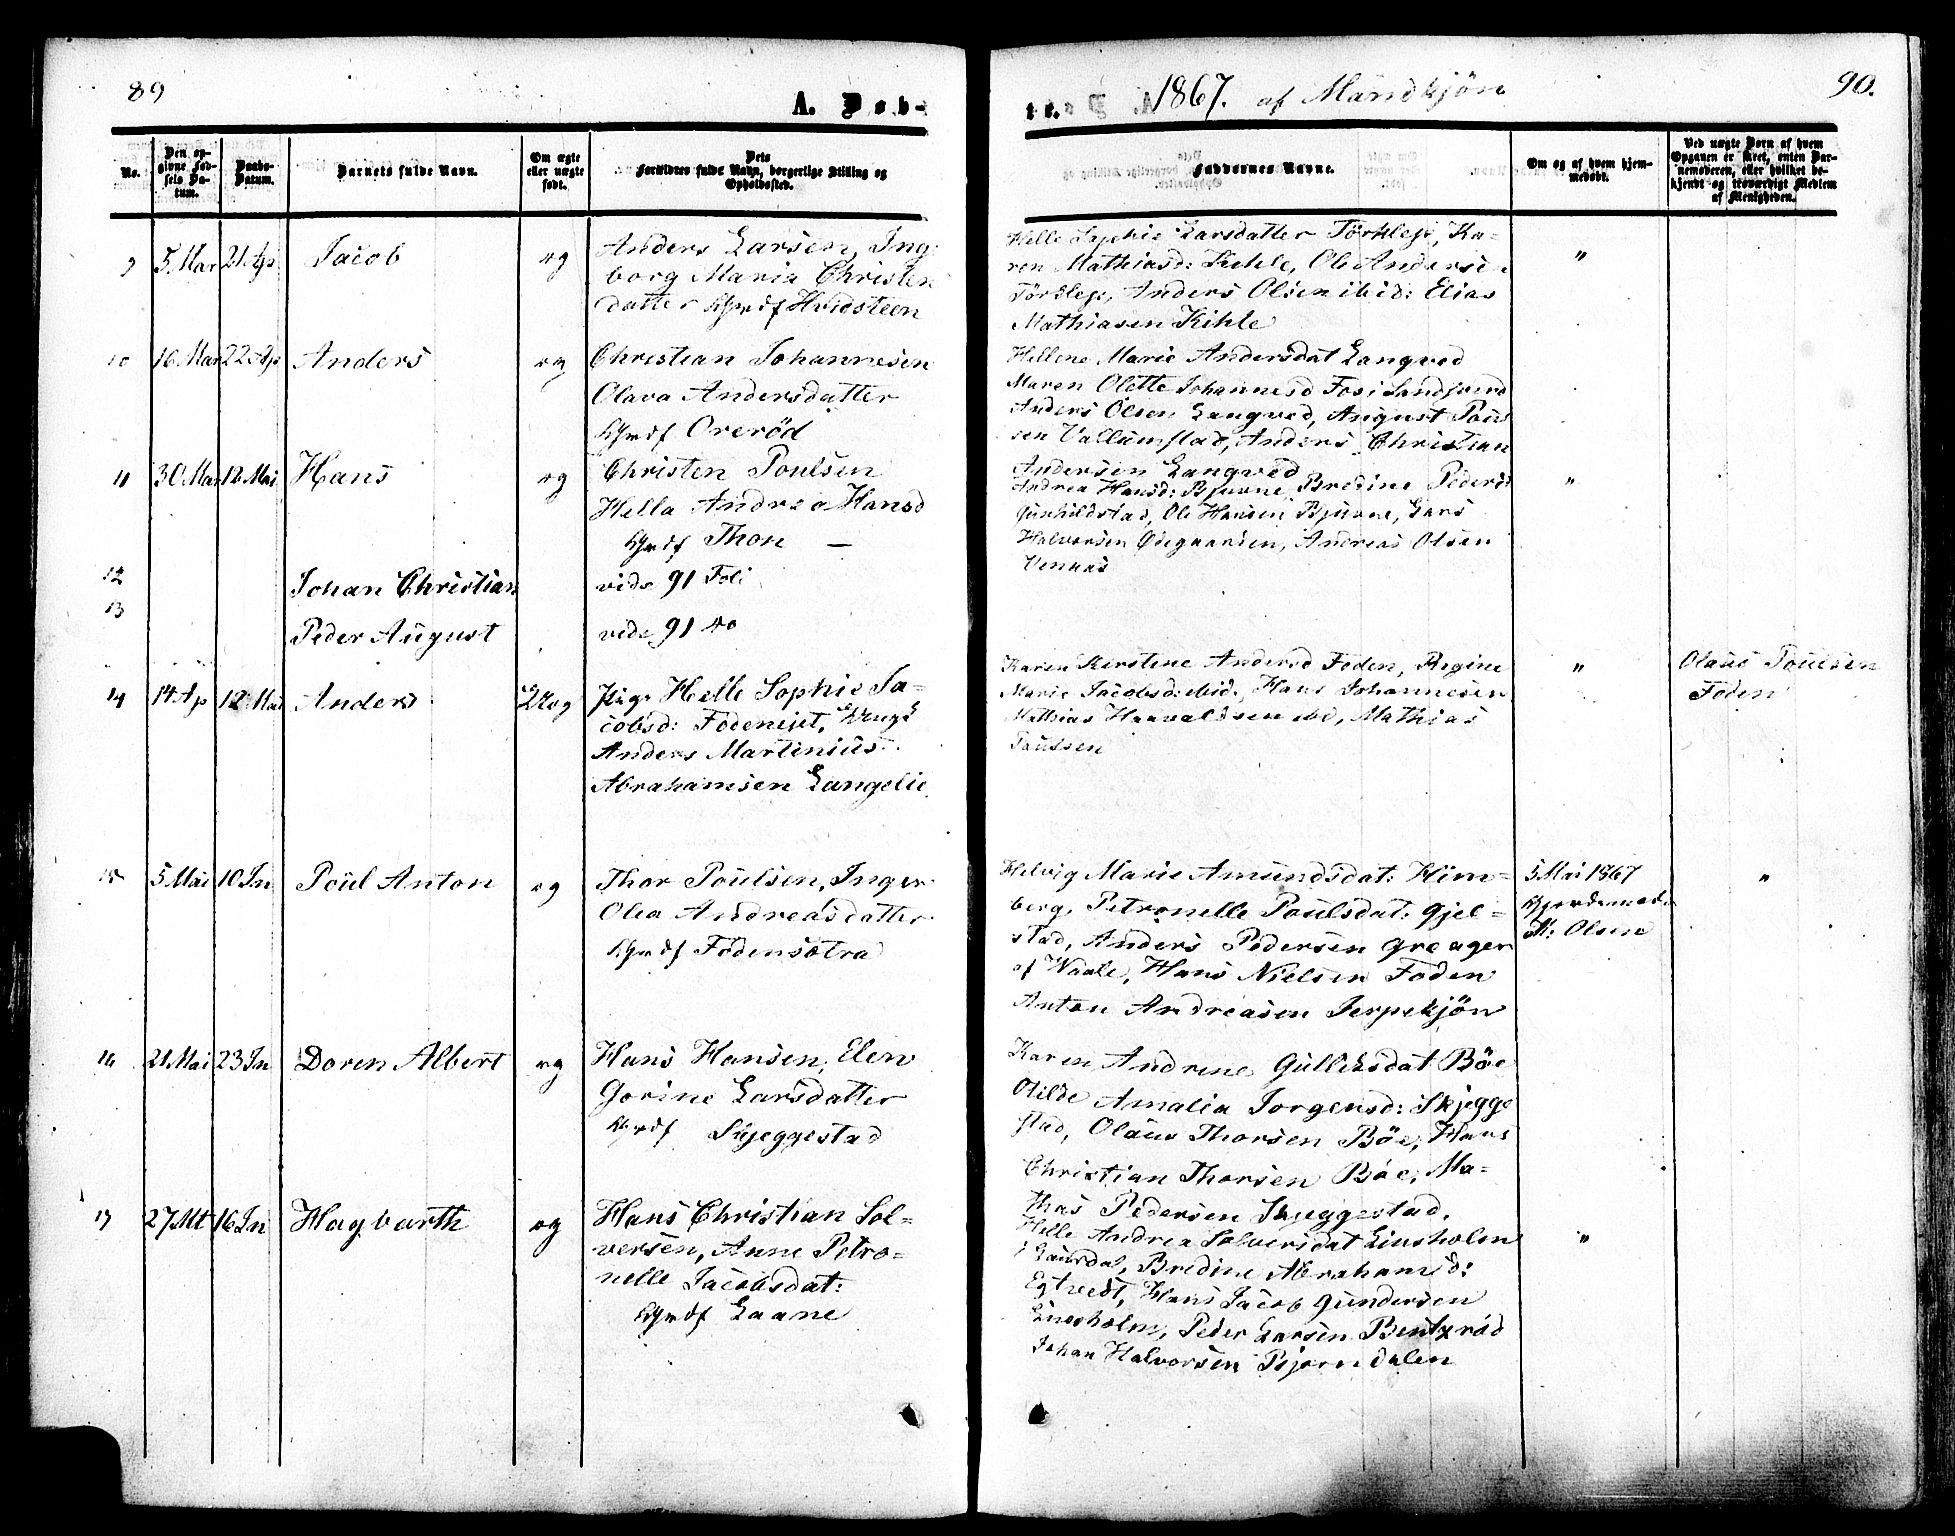 89
A. Døb-
te.
1867. af Mandkjön
90.
No.
Den op-
givne Fød-
sels Da-
tum.
Daabs-
Datum.
Barnets fulde Navn.
Om ægte
eller uægte
født.
Dets
Forældres fulde Navn, borgerlige Stilling og
Opholdssted.
Faddernes Navne.
Om og af hvem hjem-
medøbt.
Ved uægte Børn af hvem
Opgaven er skeet, enten Bar-
nemoderen, eller hvilket be-
kjendt og troværdigt Medlem
af Menigheden.
9 5 Mar 21 Ap Jacob æg
Anders Larsen, Ing
borg Maria Christen
datter Hvidsteen
Helle Sophie Larsdatter Törkleje, Ka-
ren Mathiasd: Kihle, Ole Anderse
Törkleje, Anders Olsen ibid: Elias
Mathiasen Kihle
"
10 16 Mar 22 Ap Anders æg
Christian Johannesen
Olava Andersdatter
Orerød
Hellene Marie Andersdat Langved
Maren Olette Johannesd Fos i Sandsverd
Anders Olsen Langved, August Poul
sen Vallumstad, Anders Christian
Andersen Langved
11 30 Mar 12 Mai Hans æg
Christen Poulsen
Hella Andrea Hansd
Thon —
Andrea Hansd: Bjuvne, Bredine Pedersd
Gunhildstad, Ole Hansen Bjurne, Lars
Halvorsen Ødegaarden, Andreas Olsen
Vennas
"
12 Johan Christian vide 91 Foli
13 Peder August vide 91 do
14 14 Ap 12 Mai Anders Uæg
Pige Helle Sophie Ja-
cobsd: Fodeneiet, Ungk
Anders Martinius
Abrahamsen Langelie
Karen Kerstene Andersd Foden, Regine
Marie Jacobsd: ibid, Hans Johannesen
Mathias Haavaldsen ibd, Mathias
Paulsen
"
Olaus Poulsen
Foden
15 5 Mai 10 Jn Poul Anton æg
Thor Poulsen, Inger
Olea Andreasdatter
Fodensötra
Helvig Marie Amundsdat: Him-
berg, Petronelle Poulsdat: Gjel-
stad, Anders Pedersen Greager
af Waale, Hans Nielsen Foden
Anton Andreasen Jerpekjön
5 Mai 1867
Gjordemoder
M: Olsen
"
16 21 Mai 23 Jn Doren Albert æg
Hans Hansen, Elen
Gorine Larsdatter
Skjeggestad
Karen Andrine Gulliksdat Böe
Otilde Amalia Jorgensd: Skjegge
stad, Olaus Thorsen Böe, Hans
Christian Thorsen Böe, Ma-
thias Pedersen Skjeggestad.
17 27 Mt 16 Jn Hagbarth æg
Hans Christian Sol-
versen, Anne Petro-
nelle Jacobsdat:
Laane
Helle Andrea Solversdat Linsholm
i Laurdal, Bredine Abrahamsd:
Egtvedt, Hans Jacob Gundersen
Linsholm, Peder Larsen Bentzröd
Johan Halvorsen Bjorndalen
"